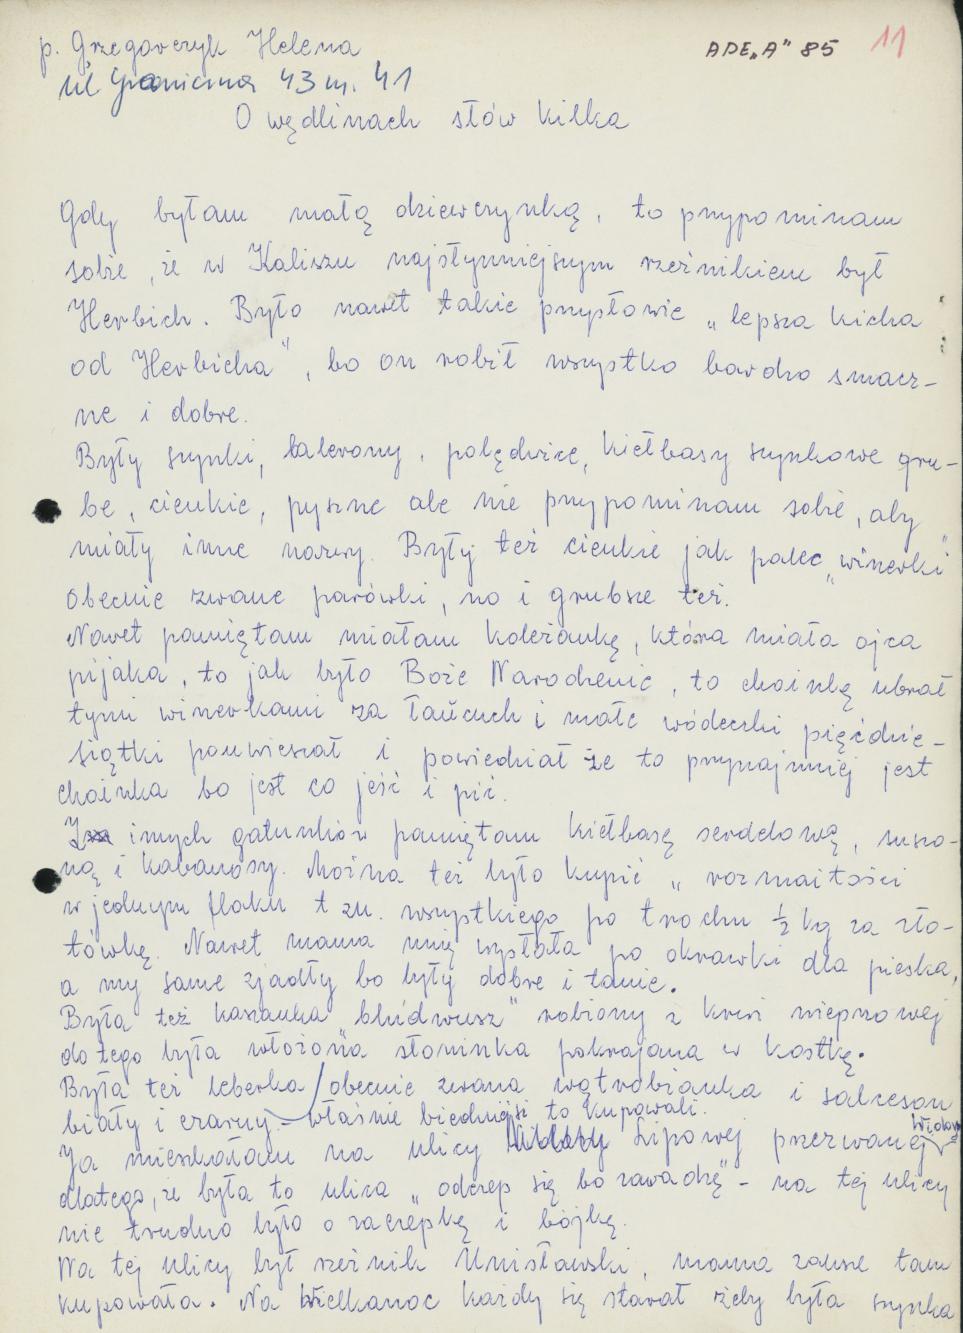 p. Grzegorczyk Helena
ul Graniczna 43 m. 41
ADE„A” 85
11
O wędlinach słów kilka
Gdy byłam małą dziewczynką, to przypominam
sobie, że w Kaliszu najsłynniejszym rzeźnikiem był
Herbich. Było nawet takie przysłowie „lepsza kicha
od Herbicha”, bo on robił wszystko bardzo smacz-
ne i dobre.
Były szynki, balerony, polędwice, kiełbasy szynkowe gru-
be, cienkie, pyszne ale nie przypominam sobie, aby
miały inne nazwy. Były też cienkie jak palec „winerki”
obecnie zwane parówki, no i grubsze też.
Nawet pamiętam miałam koleżankę, która miała ojca
pijaka, to jak było Boże Narodzenie, to choinkę ubrał
tymi winerkami za łańcuch i małe wódeczki pięćdzie-
siątki pouwieszał i powiedział że to przynajmniej jest
choinka bo jest co jeść i pić.
Z innych gatunków pamiętam kiełbasę serdelową, suszo-
ną i kabanosy. Można też było kupić „rozmaitości
w jednym flaku tzn. wszystkiego po trochu ½ kg za zło-
tówkę. Nawet mama mnię wysłała po okrawki dla pieska,
a my same zjadły bo były dobre i tanie.
Była też kaszanka „bludwusz” robiony z krwi wieprzowej
do tego była włożona słoninka pokrajana w kostkę.
Była też leberka / obecnie zwana wątrobianka i salceson
biały i czarny – właśnie biedniejsi to kupowali.
Ja mieszkałam na ulicy Lipowej przezwanej
dlatego, że była to ulica „odczep się bo zawadzę” – na tej ulicy
nie trudno było o zaczepkę i bójkę.
Na tej ulicy był rzeźnik Unisławski, mama zawsze tam
kupowała. Na Wielkanoc każdy się starał żeby była szynka